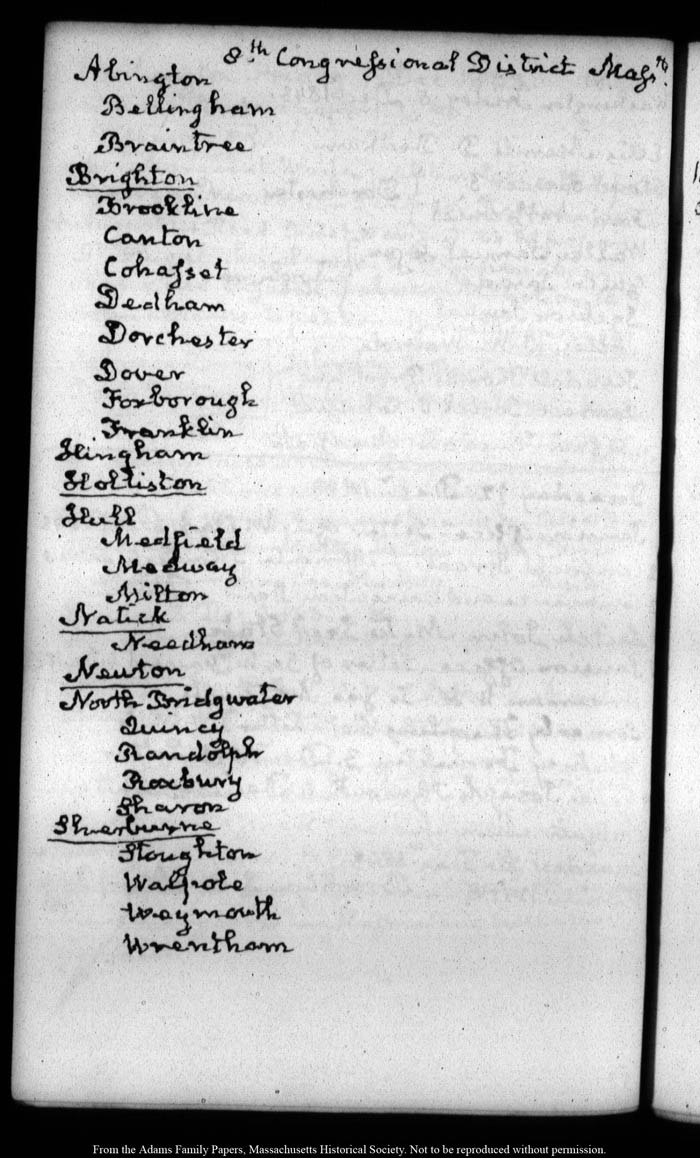 8th Congressional District Massts.
Abington
Bellingham
Braintree
Brighton
Brookline
Canton
Cohasset
Dedham
Dorchester
Dover
Foxborough
Franklin
Hingham
Holliston
Hull
Medfield
Medway
Milton
Natick
Needham
Newton
North Bridgwater
Quincy
Randolph
Roxbury
Sharon
Sherburne
Stoughton
Walpole
Weymouth
Wrentham
From the Adams Family Papers, Massachusetts Historical Society. Not to be reproduced without permission.